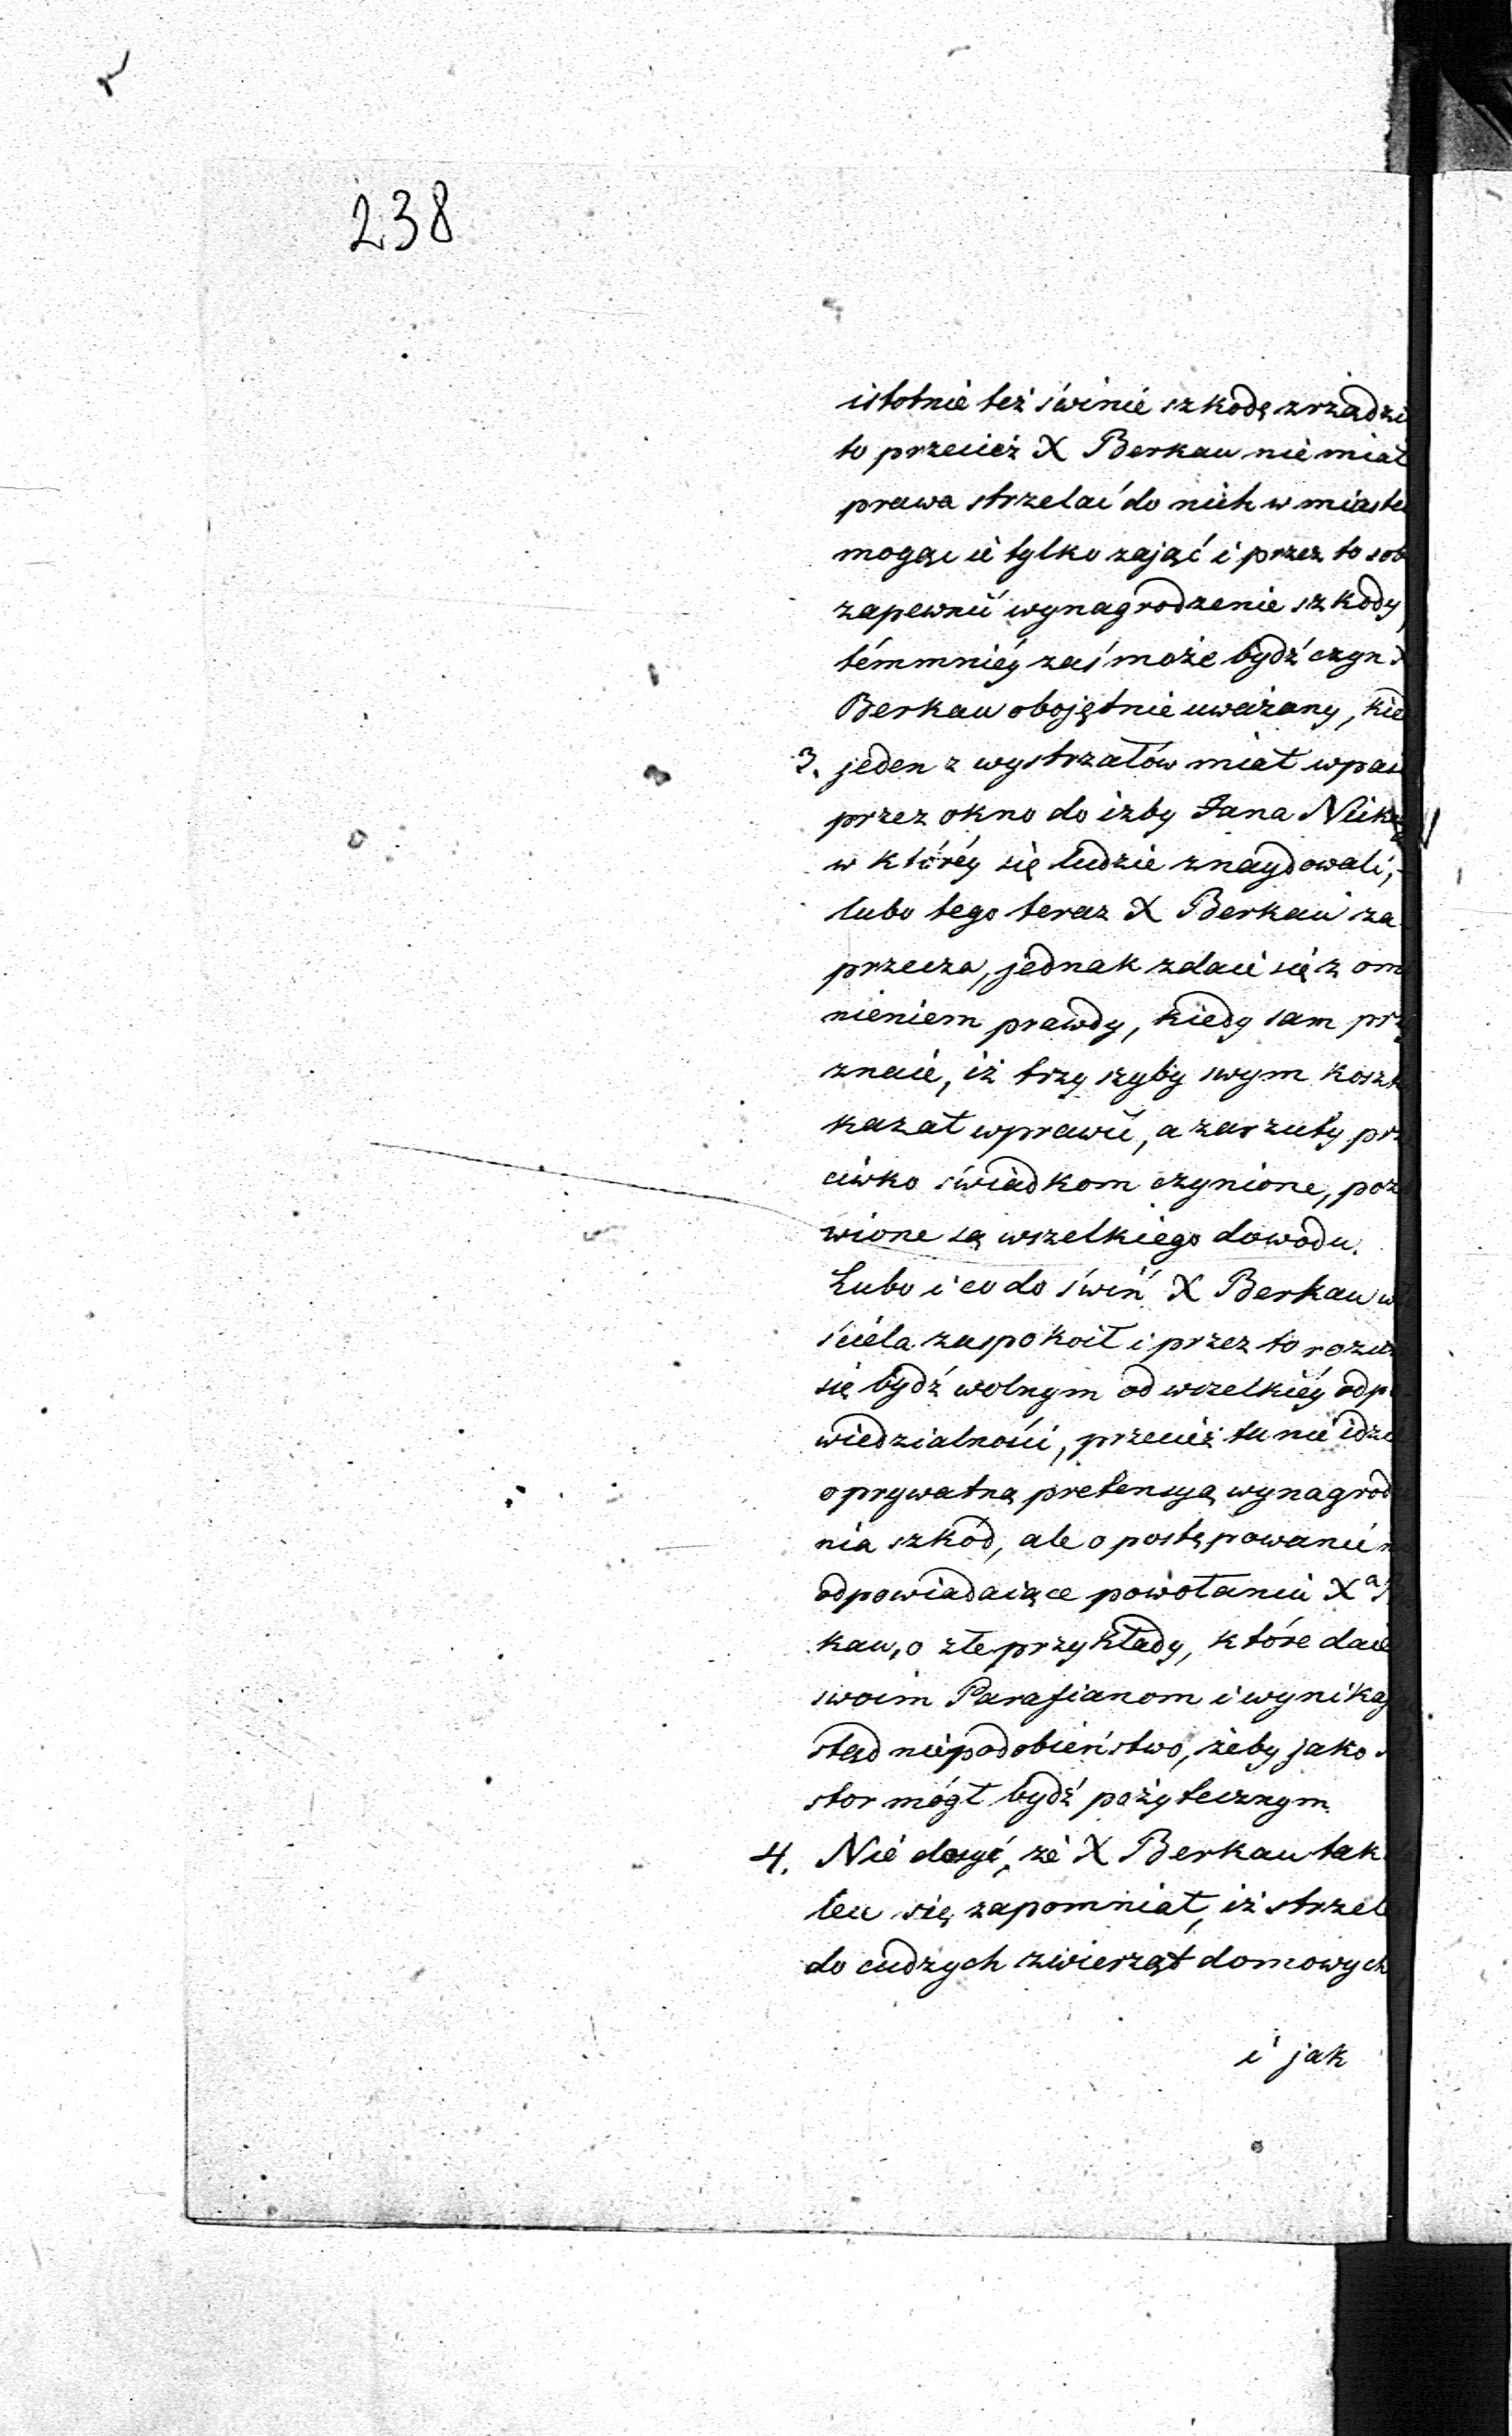 238
istotnie też świnie szkodę zrządzi
to przecież X Berkau nie miał
prawa strzelać do nich w miaste
mogąc ie tylko zająć i przez to sob
zapewnić wynagrodzenie szkody,
témmniéy zaś może bydź czyn X
Berkau obojętnie uważany, kied
3. jeden z wystrzałów miał wpaś
przez okno do izby Jana
w któréy się ludzie znaydowali,
lubo tego teraz X Berkau za
przecza, jednak zdaie się z om
nieniem prawdy, kiedy sam prz
znaie, iż trzy szyby swym koszt
kazał wprawić, a zarzuty prz
ciwko świadkom czynione, poz
wione są wszelkiego dowodu.
Lubo i co do świń X Berkau w
ściela zaspokoił i przez to rozu
się bydź wolnym od wszelkiéy odp
wiedzialności, przecież tu nie idzie
o prywatną pretensyą wynagrod
nia szkód, ale o postępowanie n
odpowiadaiące powołaniu Xa
kau, o złe przykłady, które daie
swoim Parafianom i wynikaj
stąd niepodobieństwo, żeby jako
stor mógł bydź pożytecznym.
4. Nie dosyć, że X Berkau tak
leu się zapomniał, iż strzel
do cudzych zwierząt domowych
i jak